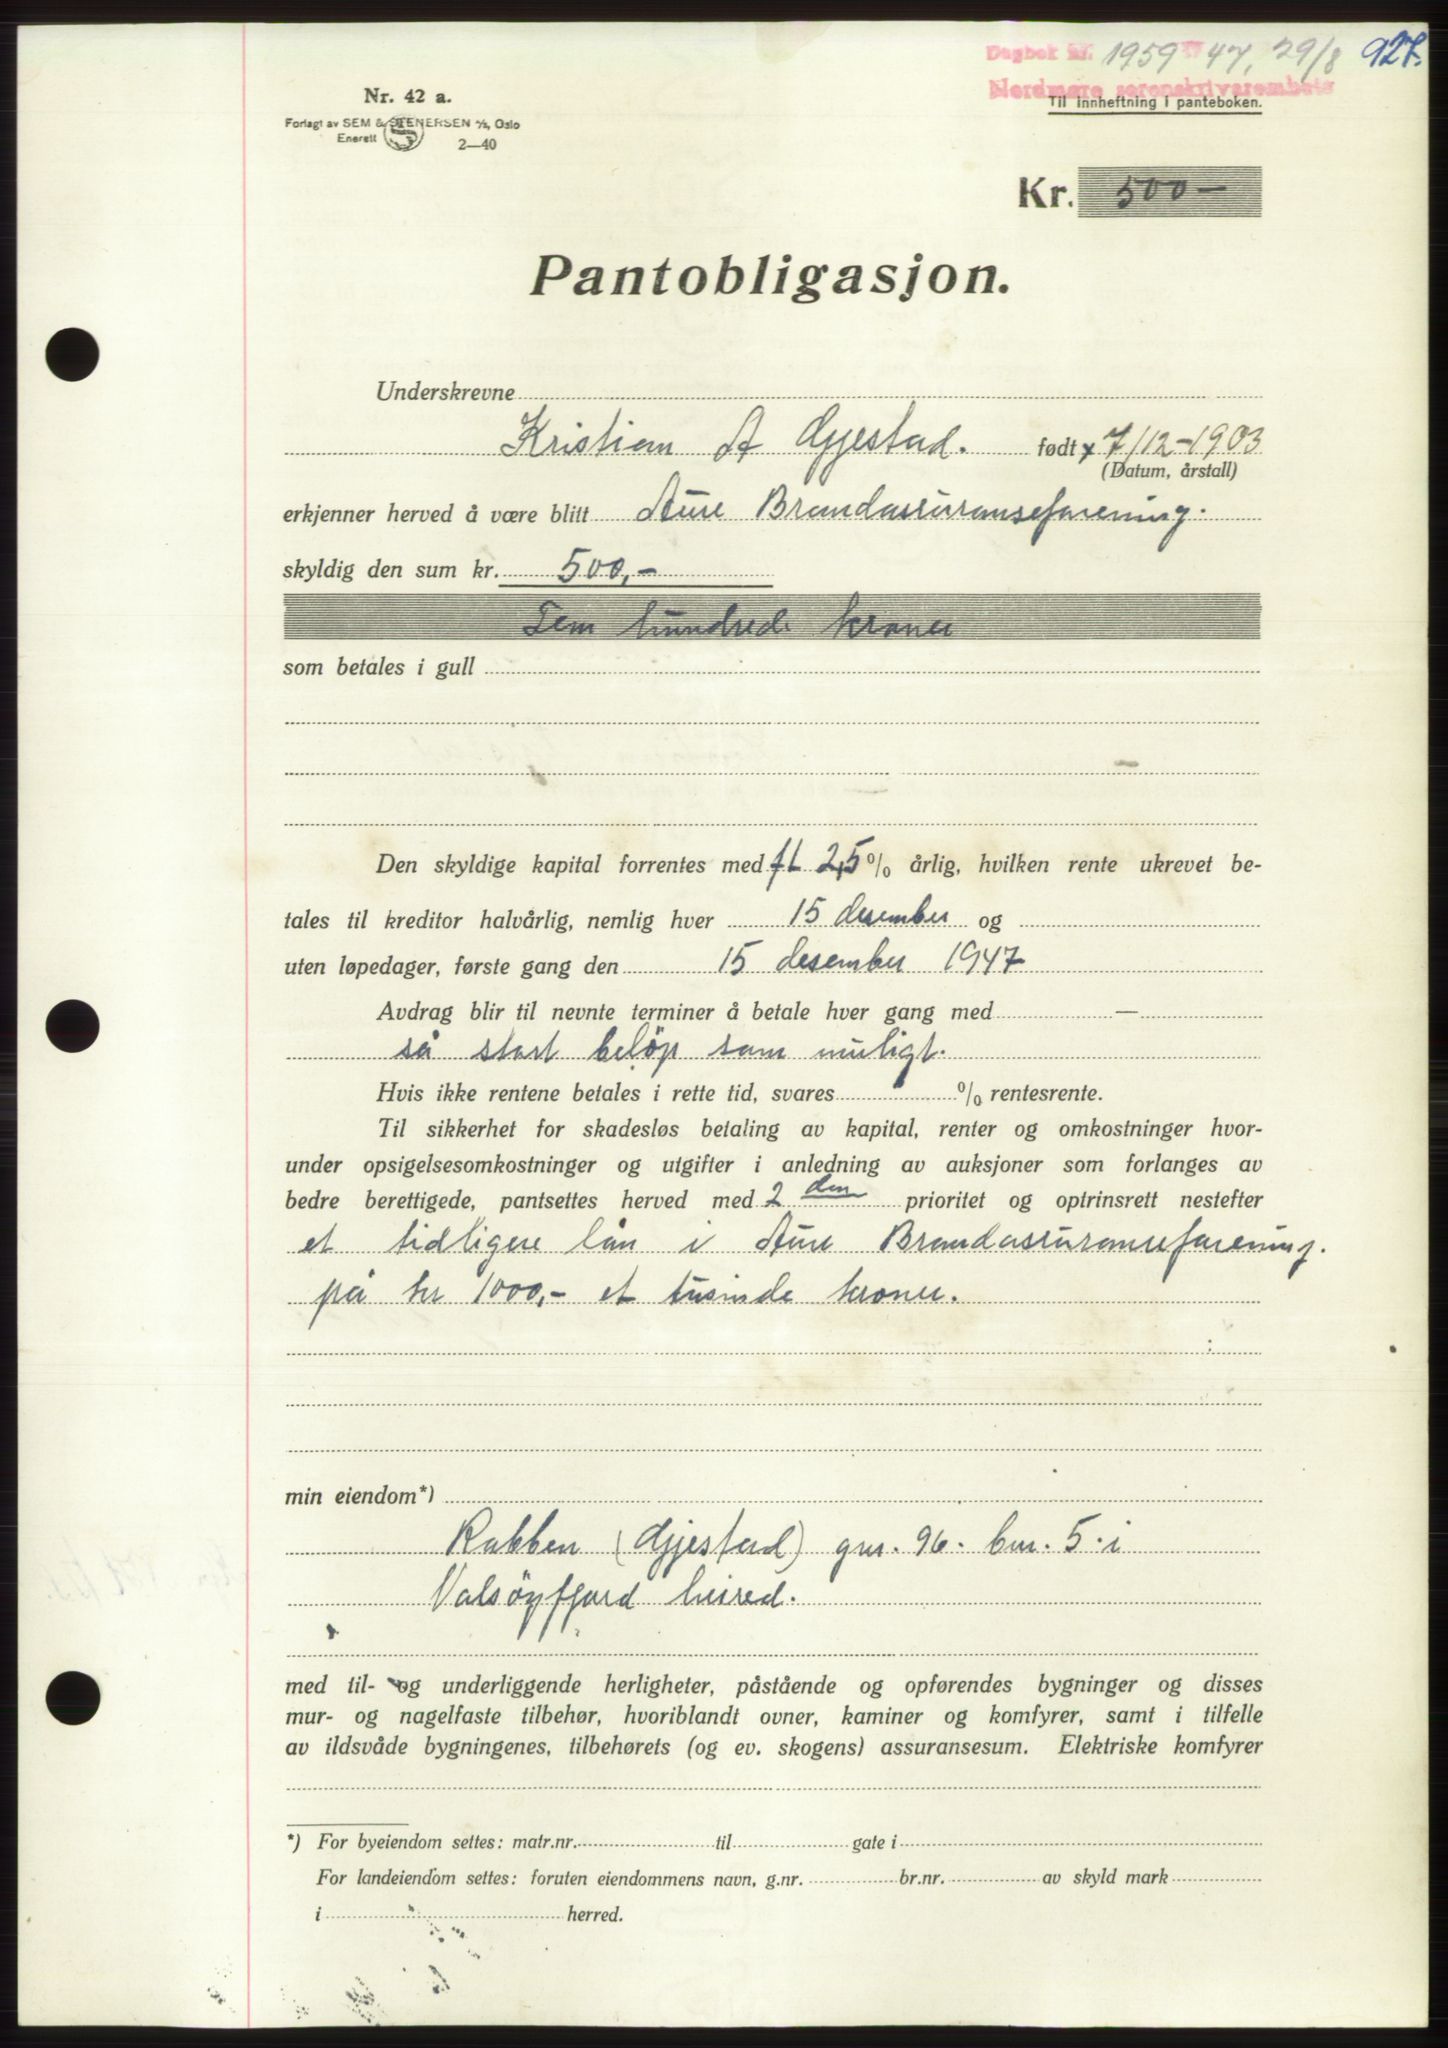 Dagbok nr. 1959 47, 29/8 927.
Nordmøre sorenskriverembete
Til innheftning i panteboken.
Nr. 42 a.
Forlagt av SEM & STENERSEN A/S, Oslo
Enerett
2—40
Kr. 500 —
Pantobligasjon.
Underskrevne
Kristian A Gjestad. født 7/12-1903
(Datum, årstall)
erkjenner herved å være blitt Aure Brandassuranseforening.
skyldig den sum kr. 500,-
Fem hundrede kroner
som betales i gull
Den skyldige kapital forrentes med ft 2,5 % årlig, hvilken rente ukrevet be-
tales til kreditor halvårlig, nemlig hver 15 desember og
uten løpedager, første gang den 15 desember 1947
Avdrag blir til nevnte terminer å betale hver gang med —
så stort beløp som muligt.
Hvis ikke rentene betales i rette tid, svares % rentesrente.
Til sikkerhet for skadesløs betaling av kapital, renter og omkostninger hvor-
under opsigelsesomkostninger og utgifter i anledning av auksjoner som forlanges av
bedre berettigede, pantsettes herved med 2 den prioritet og optrinsrett nestefter
et tidligere lån i Aure Brandassuranseforening.
på kr 1000,- et tusinde kroner.
min eiendom*)
Rabben (Gjestad) gnr. 96. bnr. 5. i
Valsöyfjord herred.
med til- og underliggende herligheter, påstående og opførendes bygninger og disses
mur- og nagelfaste tilbehør, hvoriblandt ovner, kaminer og komfyrer, samt i tilfelle
av ildsvåde bygningenes, tilbehørets (og ev. skogens) assuransesum. Elektriske komfyrer
*) For byeiendom settes: matr.nr. til gate i
For landeiendom settes: foruten eiendommens navn, g.nr. br.nr. av skyld mark
i herred.